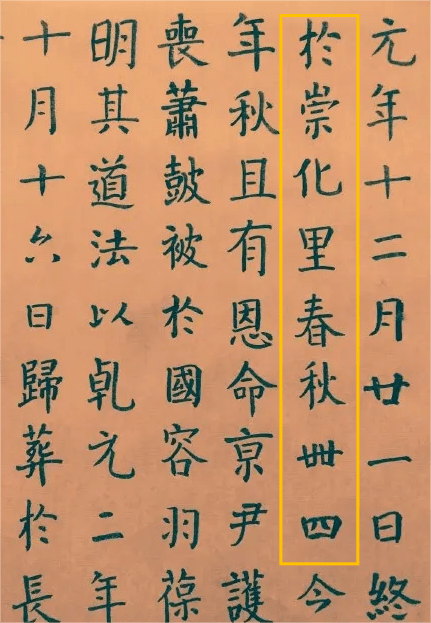 元年十二月廿一日終
於崇化里春秋卌四今
年秋且有恩命亰尹護
喪蕭鼓被於國容羽葆
明其道法以乹元二年
十月十六日歸葬於長